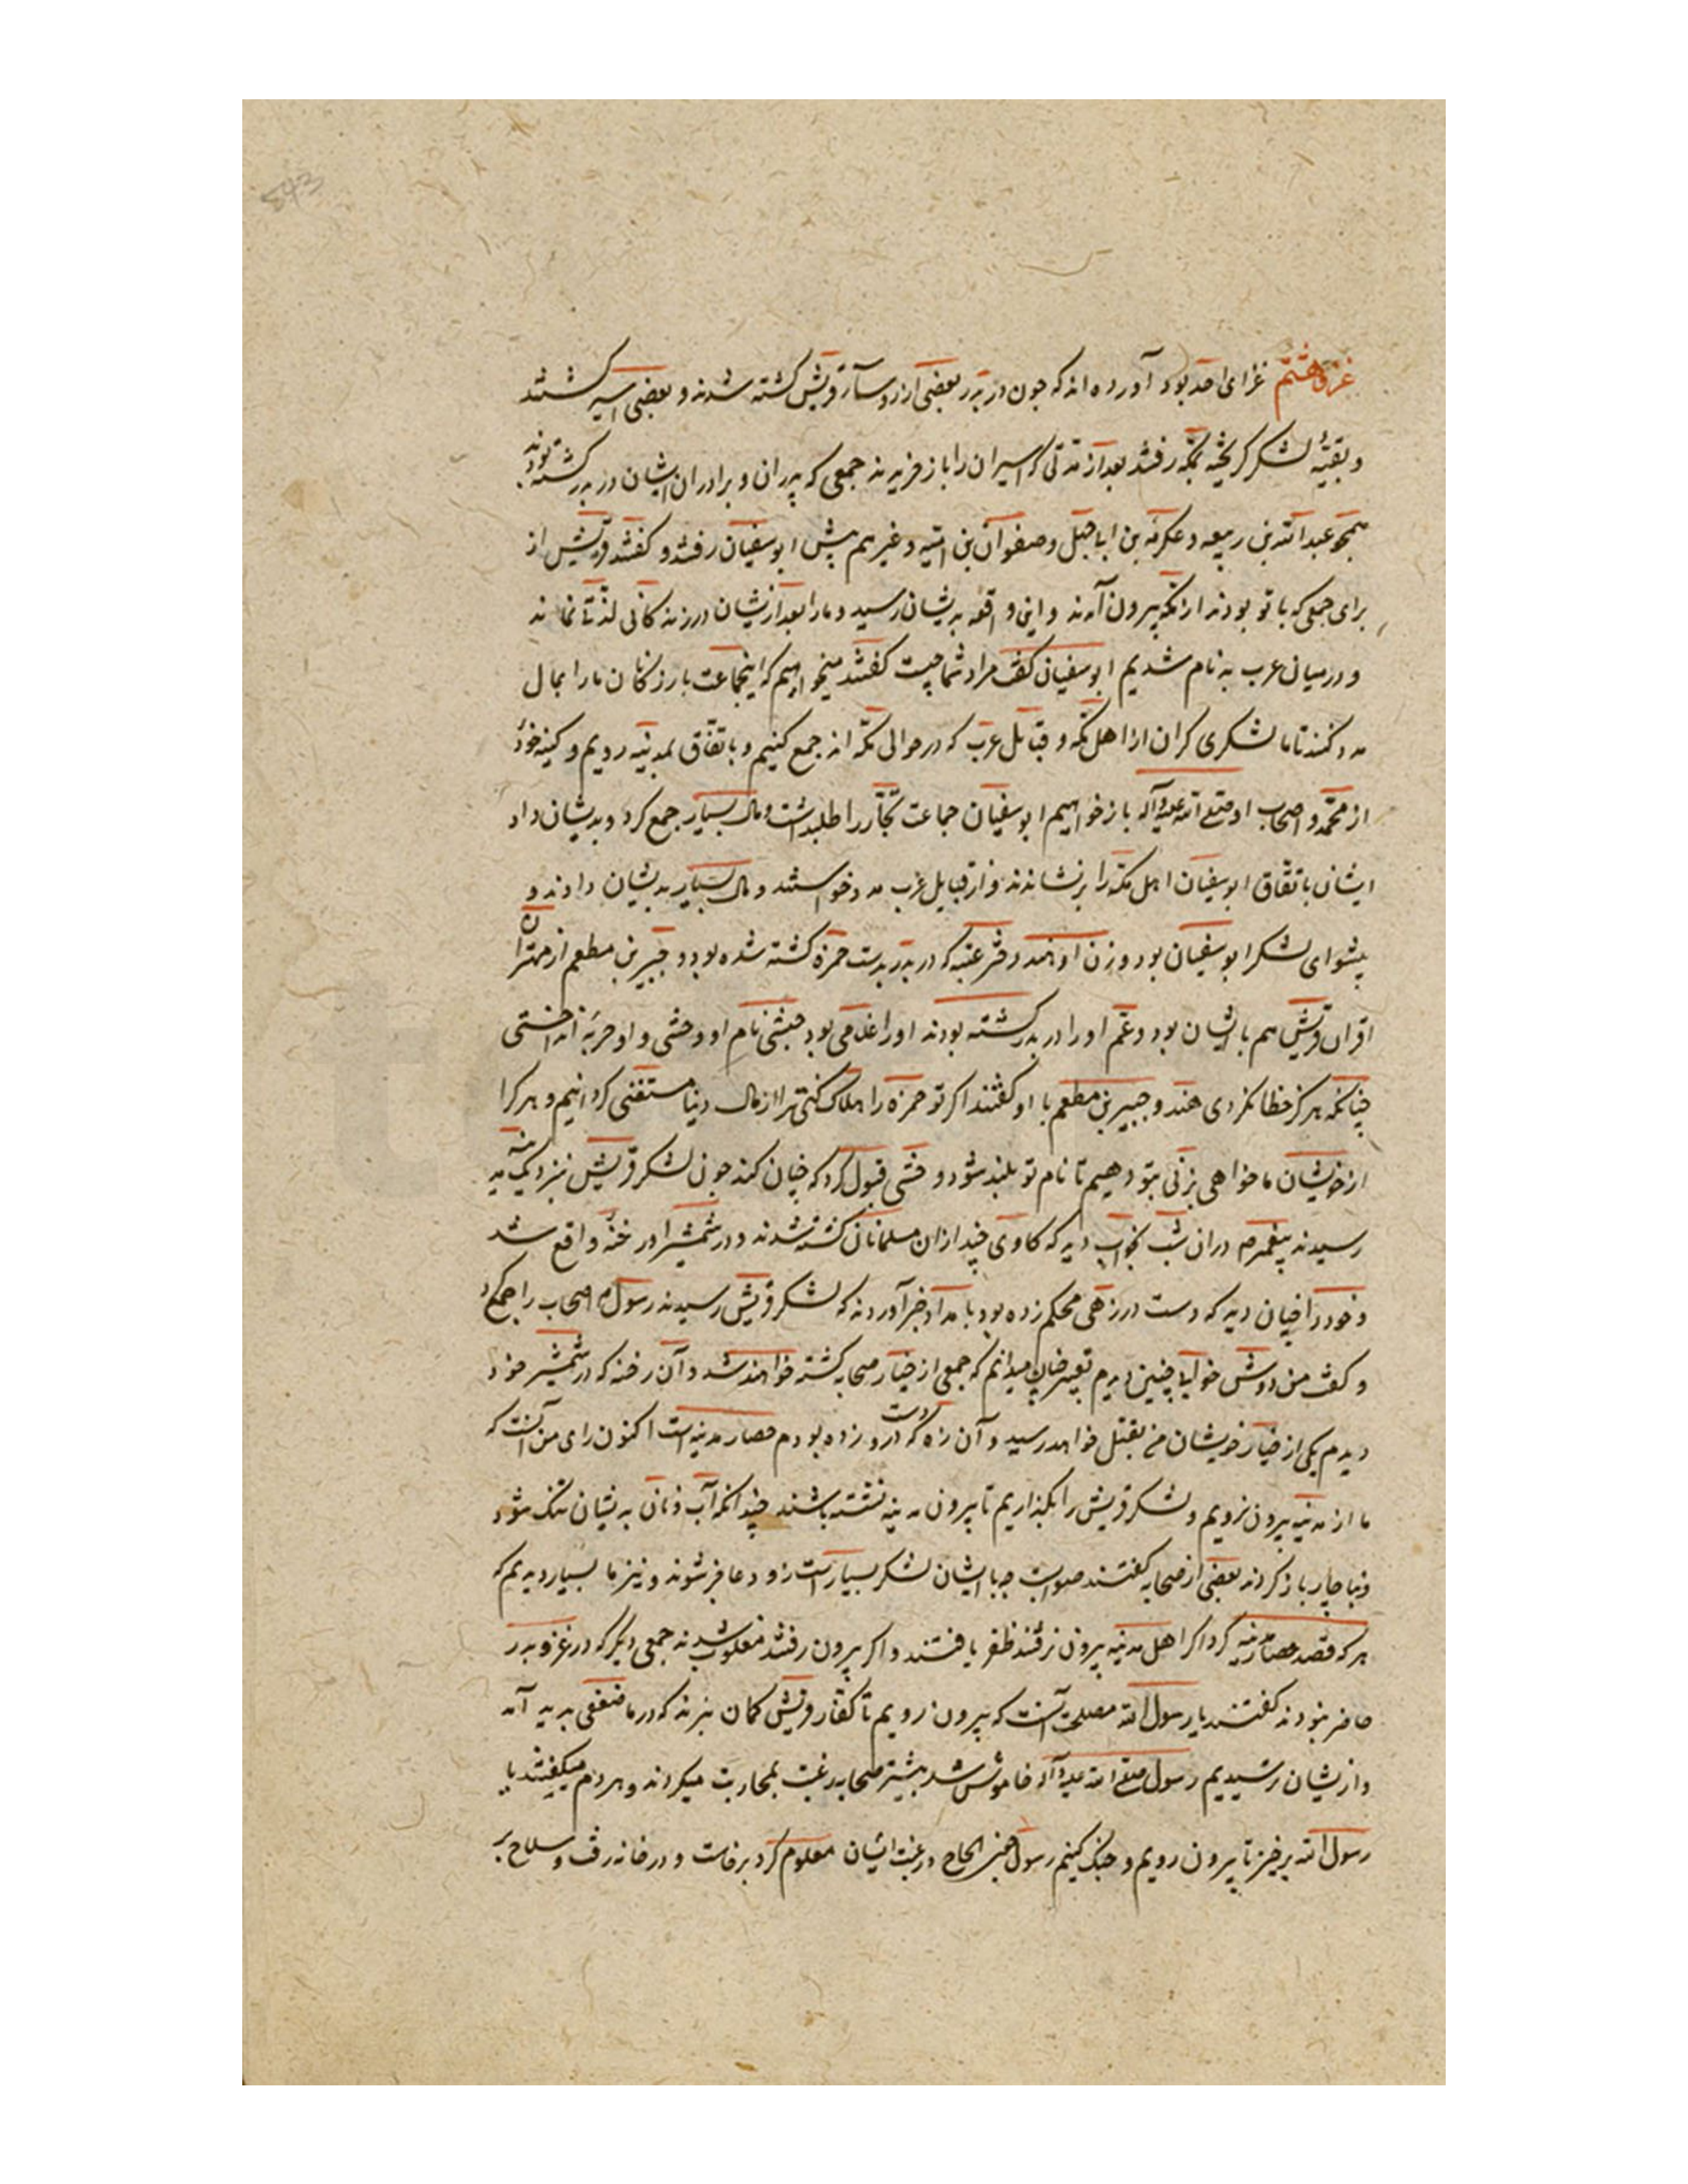 غزوهٔ هشتم غزای احد بود آورده اند که چون در بدر بعضی از رؤسآء قریش کشته شدند و بعضی اسیر کشتند
و بقیّه لشکر کریخته بمکّه رفتند بعد از مدّتی که اسیران را باز خریدند جمعی که پدران و برادران ایشان در بدر کشته بودند
همچو عبد الله بن ربیعه و عکرمه بن ابا جهل و صفوان بن امیّه و غیرهم پیش ابو سفیان رفتند و کفتند قریش از
برای جمعی که با تو بودند از مکّه بیرون آمدند و این واقعه بدیشان رسید و ما را بعد از یشان در زندکانی لذّتی نماند
و در میان عرب بدنام شدیم ابو سفیان کفت مراد شما چیست کفتند میخواهیم که اینجماعت بازرکانان ما را بمال
مدد کنند تا ما لشکری کران از اهل مکّه و قبایل عرب که در حوالی مکّه اند جمع کنیم و باتفاق بمدینه رویم و کینه خود
از محمّد و اصحاب او صلی الله علیه و آله باز خواهیم ابو سفیان جماعت تجّار را طلبداشت و مال بسیار جمع کرد و بدیشان داد
ایشان باتفاق ابو سفیان اهل مکّه را برنشاندند و از قبایل عرب مدد خواستند و مال بسیار بدیشان دادند و
پیشوای لشکر ابو سفیان بود و زن او هند دختر عتبه که در بدر بدست حمزه کشته شده بود و جبیر بن مطعم از مهتران
اقران قریش هم با ایشان بود و عمّ او را در بدر کشته بودند او را غلامی بود حبشی نام او وحشی و او حربه انداختی
چنانکه هرکز خطا نکردی هند و جبیر بن مطعم با او کفتند اکر تو حمزه را هلاک کنی ترا از مال دنیا مستغنی کردانیم و هر کرا
از خویشان ما خواهی بزنی بتو دهیم تا نام تو بلند شود وحشی قبول کرد که چنان کند چون لشکر قریش بنزدیک مدینه
رسیدند پیغمبر ص در ان شب بخواب دید که کاوی چند از ان مسلمانان کشته شدند و در شمشیر او رخنه واقع شد
و خود را چنان دید که دست در زرهی محکم زده بود بامداد خبر آوردند که لشکر قریش رسیدند رسول ص اصحاب را جمع کرد
و کفت من دوش خوابی چنین دیدم تعبیر چنان میدانم که جمعی از خیار صحابه کشته خواهند شد و آن رخنه که در شمشیر خود
دیدم یکی از خیار خویشان من بقتل خواهد رسید و آن زره که دست درو زده بودم حصار مدینه است اکنون رای من آنست که
ما از مدینه بیرون نرویم و لشکر قریش را بکذاریم تا بیرون مدینه نشسته باشند چندانکه آب و نان بدیشان تنک شود
و بناچار باز کردند بعضی از صحابه کفتند صوابست چه با ایشان لشکر بسیار است زود عاجز شوند و نیز ما بسیار دیدیم که
هر که قصد حصار مدینه کرد اکر اهل مدینه بیرون نرفتند ظفر یافتند و اکر بیرون رفتند مغلوب شدند جمعی دیکر که در غزو بدر
حاضر نبودند کفتند یا رسول الله مصلحت آنست که بیرون رویم تا کفّار قریش کمان نبرند که در ما ضعفی پدید آمد
و از یشان ترسیدیم رسول صلی الله علیه و آله خاموش شد بیشتر صحابه رغبت بمحاربت میکردند و هر دم میکفتند یا
رسول الله برخیز تا بیرون رویم و جنک کنیم رسول چون الحاح و رغبت ایشان معلوم کرد برخاست و در خانه رفت و سلاح بر